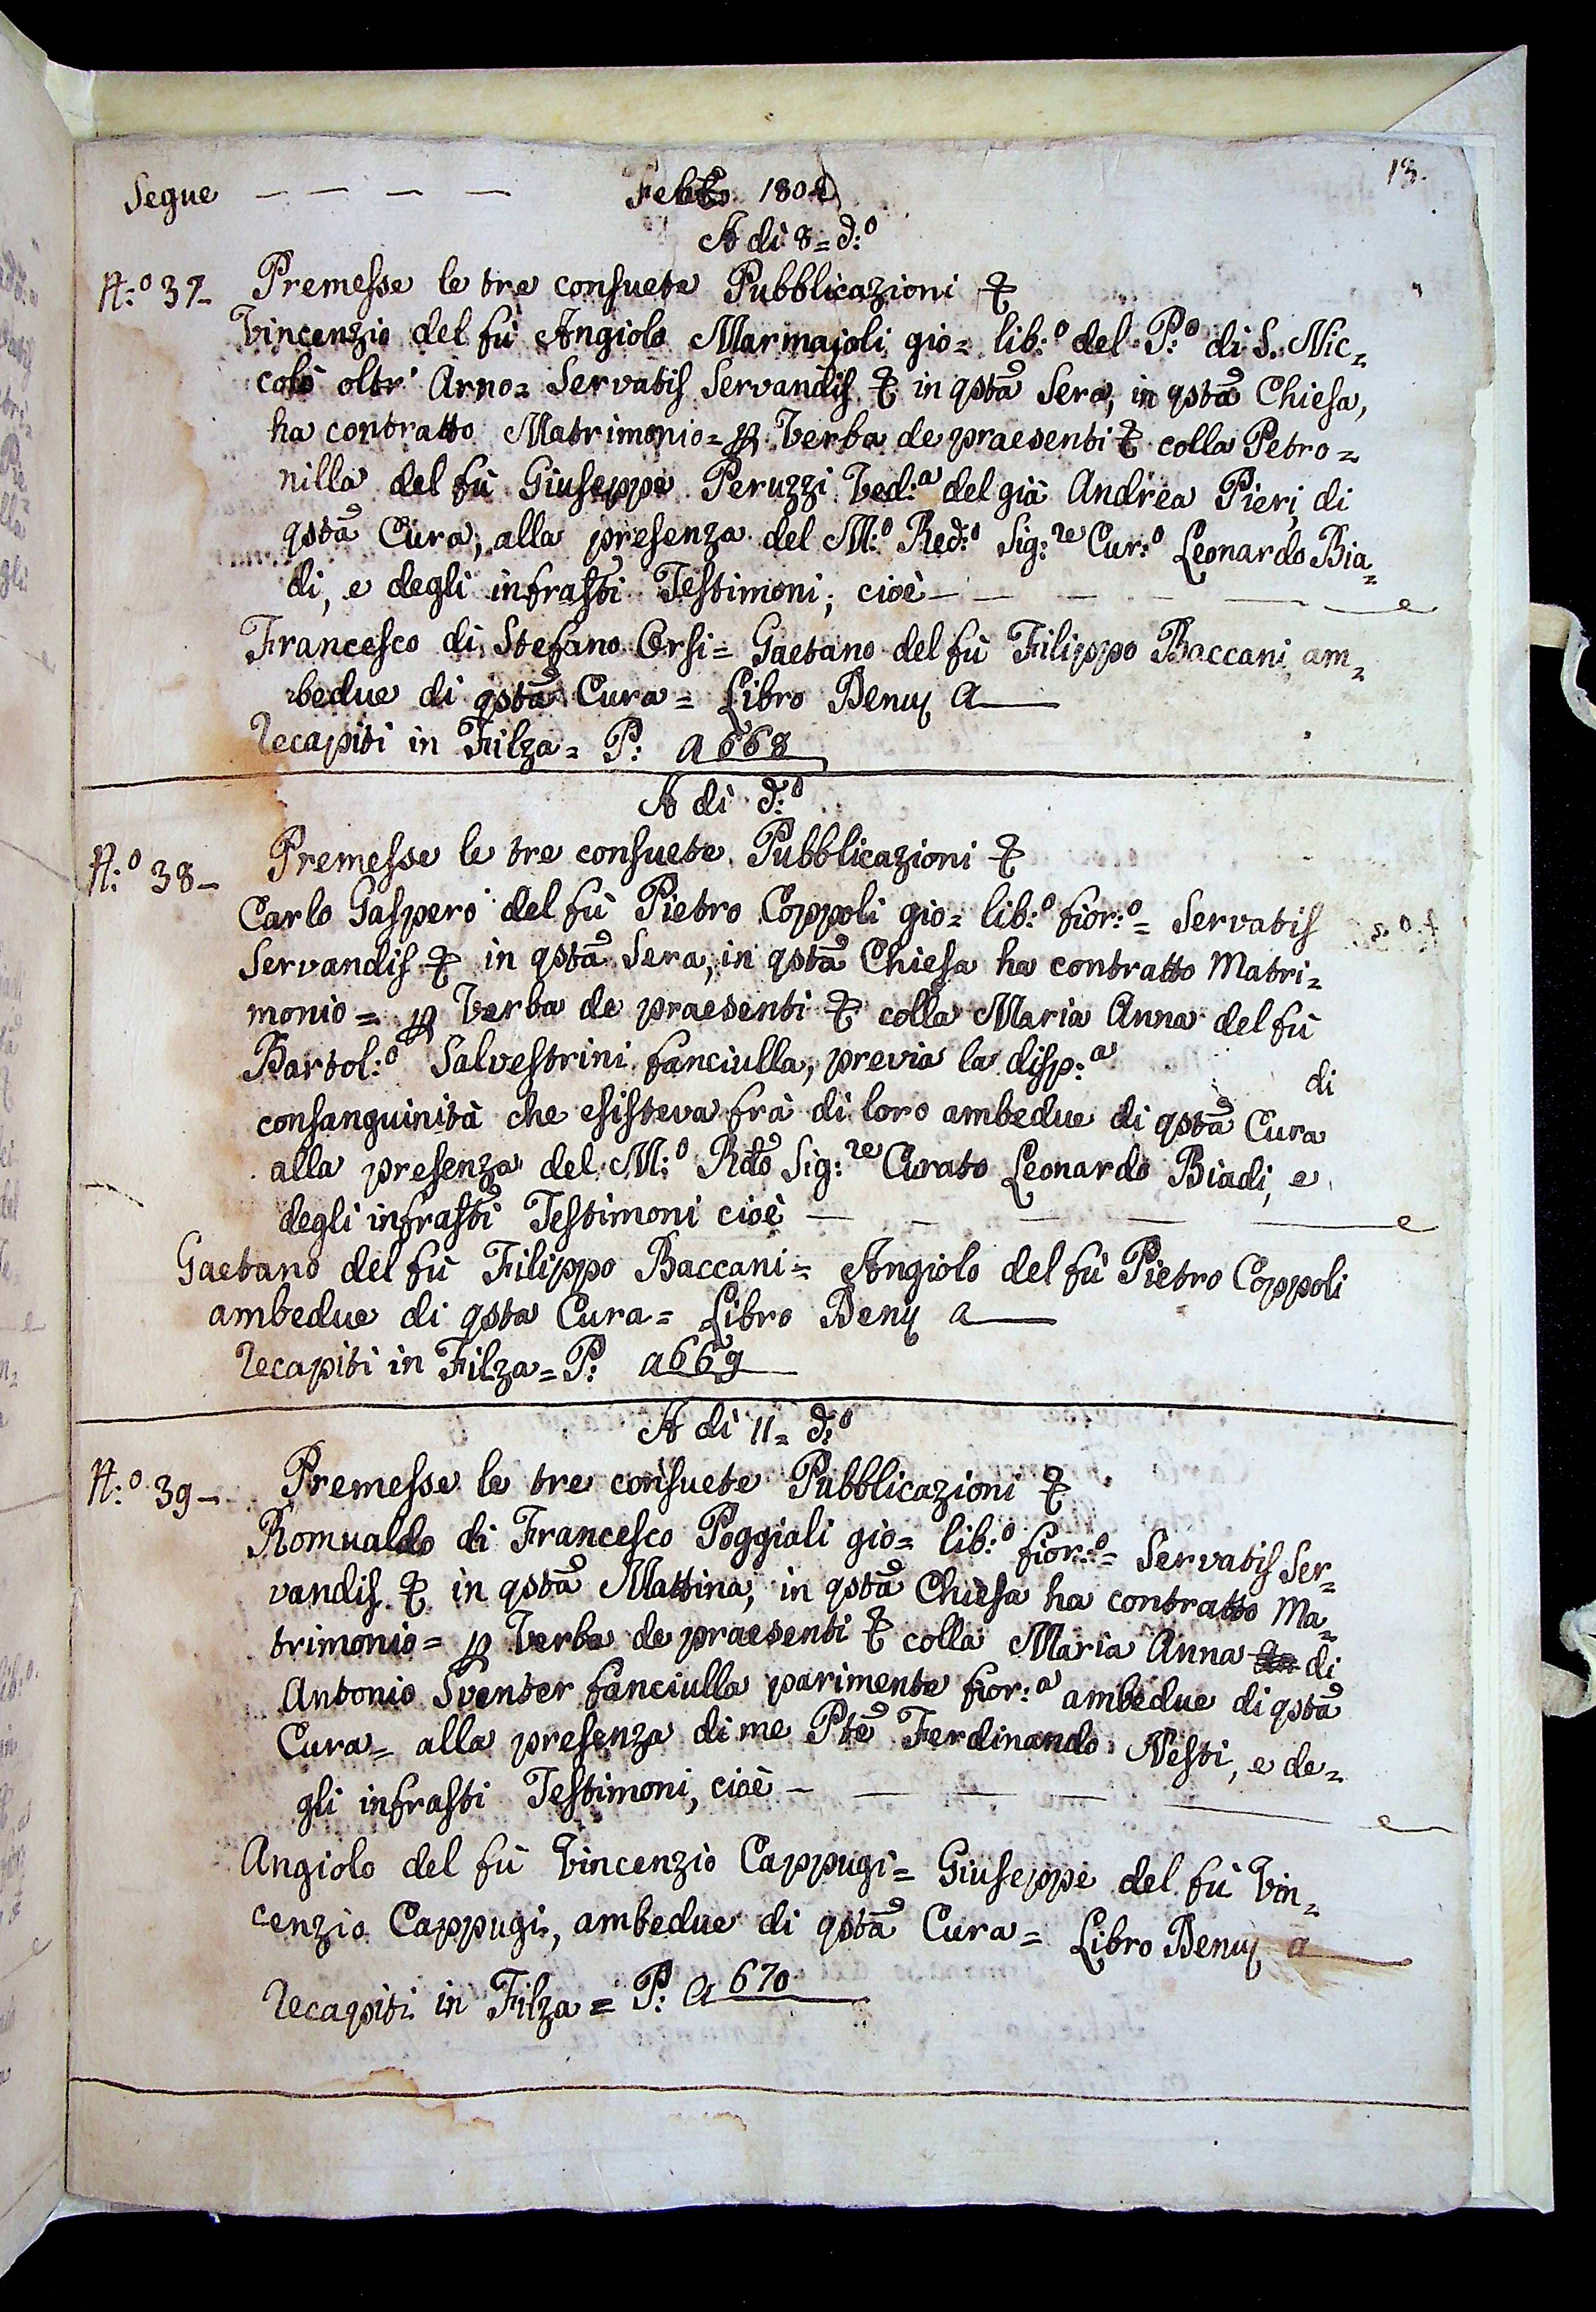 13.
Segue — — — — Febb:o 1802
A dì 8= d:o
N:o 37- Premesse le tre consuete Pubblicazioni &
Vincenzio del fù Angiolo Marmajoli gio= lib:o del P:o di S. Nic=
colò oltr' Arno= Servatis Servandis & in qsta Sera, in qsta Chiesa,
ha contratto Matrimonio= p Verba de praesenti & colla Petro=
nilla del fù Giuseppe Peruzzi Ved:a del già Andrea Pieri, di
qsta Cura, alla presenza del M:o Red:o Sig:re Cur:o Leonardo Bia=
di, e degli infrasti Testimoni, cioè — — — — —
Francesco di Stefano Orsi= Gaetano del fù Filippo Baccani am=
bedue di qsta Cura= Libro Denuz a
Recapiti in Filza= P: a 668
A dì d:o
N:o 38- Premesse le tre consuete Pubblicazioni &
Carlo Gaspero del fù Pietro Coppoli gio= lib:o fior:o= Servatis
Servandis & in qsta Sera, in qsta Chiesa ha contratto Matri=
monio= p Verba de praesenti & colla Maria Anna del fù
Bartol:o Salvestrini fanciulla, previa la disp:a di
consanguinità che esisteva frà di loro ambedue di qsta Cura
alla presenza del M:o Rdo Sig:re Curato Leonardo Biadi, e
degli infrasti Testimoni cioè — — — — —
Gaetano del fù Filippo Baccani= Angiolo del fù Pietro Coppoli
ambedue di qsta Cura= Libro Denuz a
Recapiti in Filza= P: a 669
A dì 11= d:o
N:o 39- Premesse le tre consuete Pubblicazioni &
Romualdo di Francesco Poggiali gio= lib:o fior:o= Servatis Ser=
vandis & in qsta Mattina, in qsta Chiesa ha contratto Ma=
trimonio= p Verba de praesenti & colla Maria Anna di
Antonio Sventer fanciulla parimente fior:a ambedue di qsta
Cura= alla presenza di me Pte Ferdinando Nesti, e de=
gli infrasti Testimoni, cioè — — — — —
Angiolo del fù Vincenzio Cappugi= Giuseppe del fù Vin=
cenzio Cappugi, ambedue di qsta Cura= Libro Denuz a
Recapiti in Filza= P: a 670